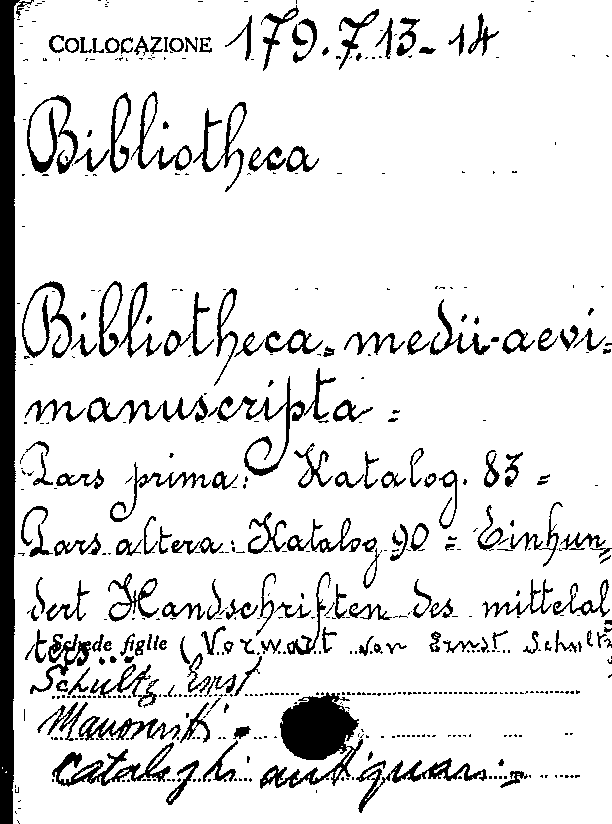 COLLOCAZIONE 179.7.13-14
Bibliotheca
Bibliotheca medii-aevi=
manuscripta =
Pars prima: Katalog. 83 =
Pars altera: Katalog 90 = Einhun=
dert Handschriften des mittelal
ters... (Vorwart von Ernst Schultz
Schede figlie
Schultz, Ernst
Manoscritti =
Cataloghi antiquari =